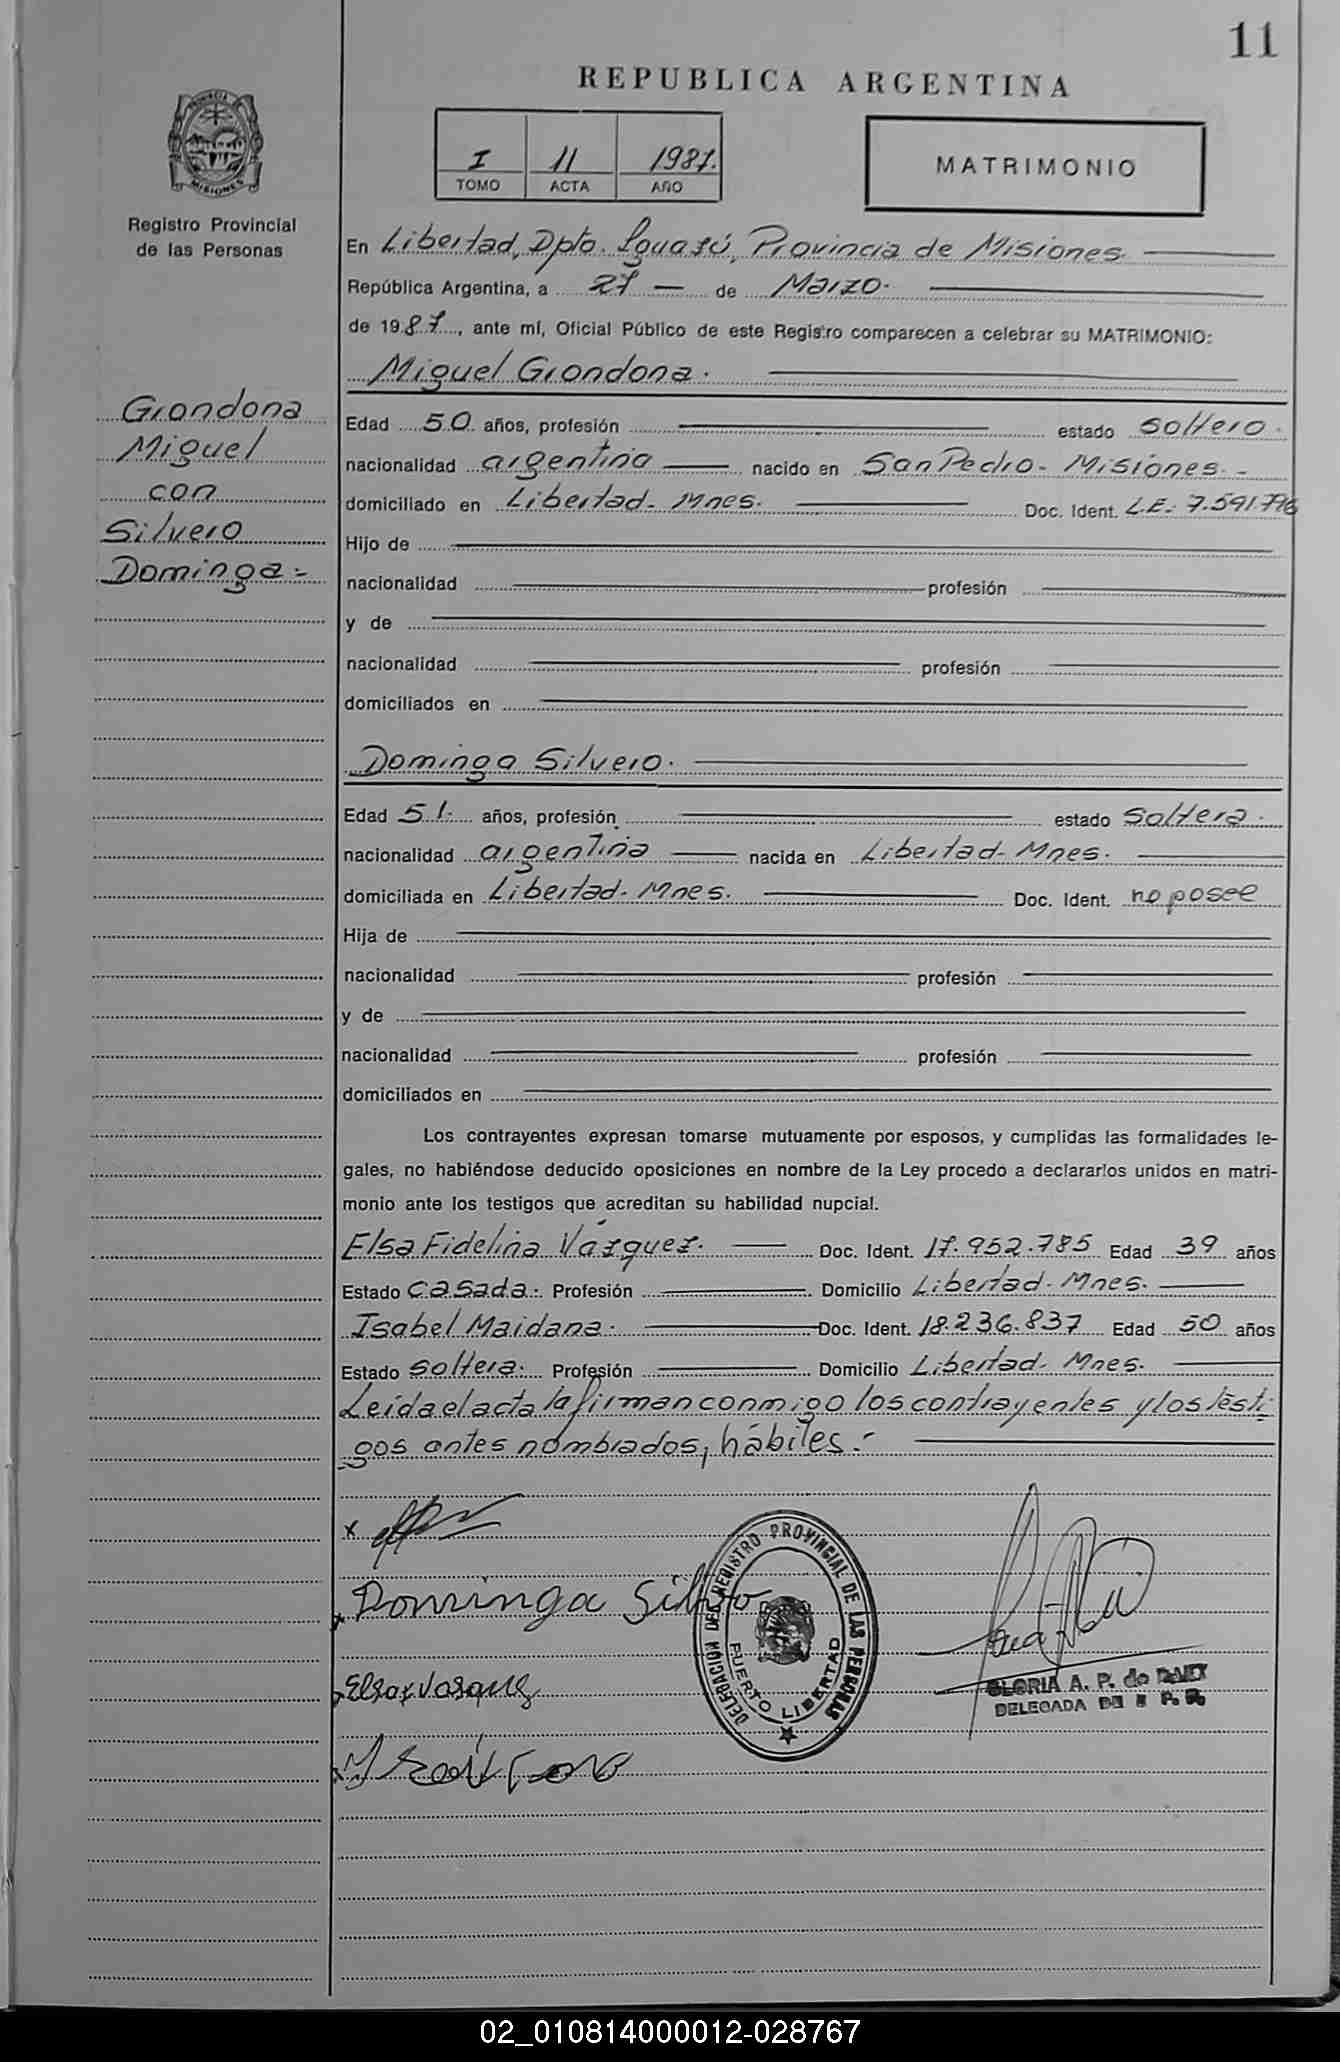 11
REPUBLICA ARGENTINA
I 11 1987.
TOMO ACTA AÑO
MATRIMONIO
PROVINCIA MISIONES
Registro Provincial
de las Personas
En Libertad, Dpto. Iguazú, Provincia de Misiones.
República Argentina, a 27 — de Marzo.
de 1987, ante mí, Oficial Público de este Registro comparecen a celebrar su MATRIMONIO:
Miguel Grondona.
Grondona
Miguel
con
Silvero
Dominga.-
Edad 50 años, profesión estado soltero.
nacionalidad argentina nacido en San Pedro- Misiones.-
domiciliado en Libertad- Mnes. Doc. Ident. L.E.: 7.591.776
Hijo de
nacionalidad profesión
y de
nacionalidad profesión
domiciliados en
Dominga Silvero.
Edad 51. años, profesión estado soltera.
nacionalidad argentina nacida en Libertad- Mnes.
domiciliada en Libertad- Mnes. Doc. Ident. no posee
Hija de
nacionalidad profesión
y de
nacionalidad profesión
domiciliados en
Los contrayentes expresan tomarse mutuamente por esposos, y cumplidas las formalidades le-
gales, no habiéndose deducido oposiciones en nombre de la Ley procedo a declararlos unidos en matri-
monio ante los testigos que acreditan su habilidad nupcial.
Elsa Fidelina Vázquez. Doc. Ident. 17.952.785 Edad 39 años
Estado casada. Profesión Domicilio Libertad- Mnes.
Isabel Maidana. Doc. Ident. 18.236.837 Edad 50 años
Estado soltera. Profesión Domicilio Libertad- Mnes.
Leida el acta la firman conmigo los contrayentes y los testi-
gos antes nombrados, hábiles.-
x
Dominga Silvero
DELEGACION DEL REGISTRO PROVINCIAL DE LAS PERSONAS
PUERTO LIBERTAD
GLORIA A. P. de
DELEGADA
02_010814000012-028767